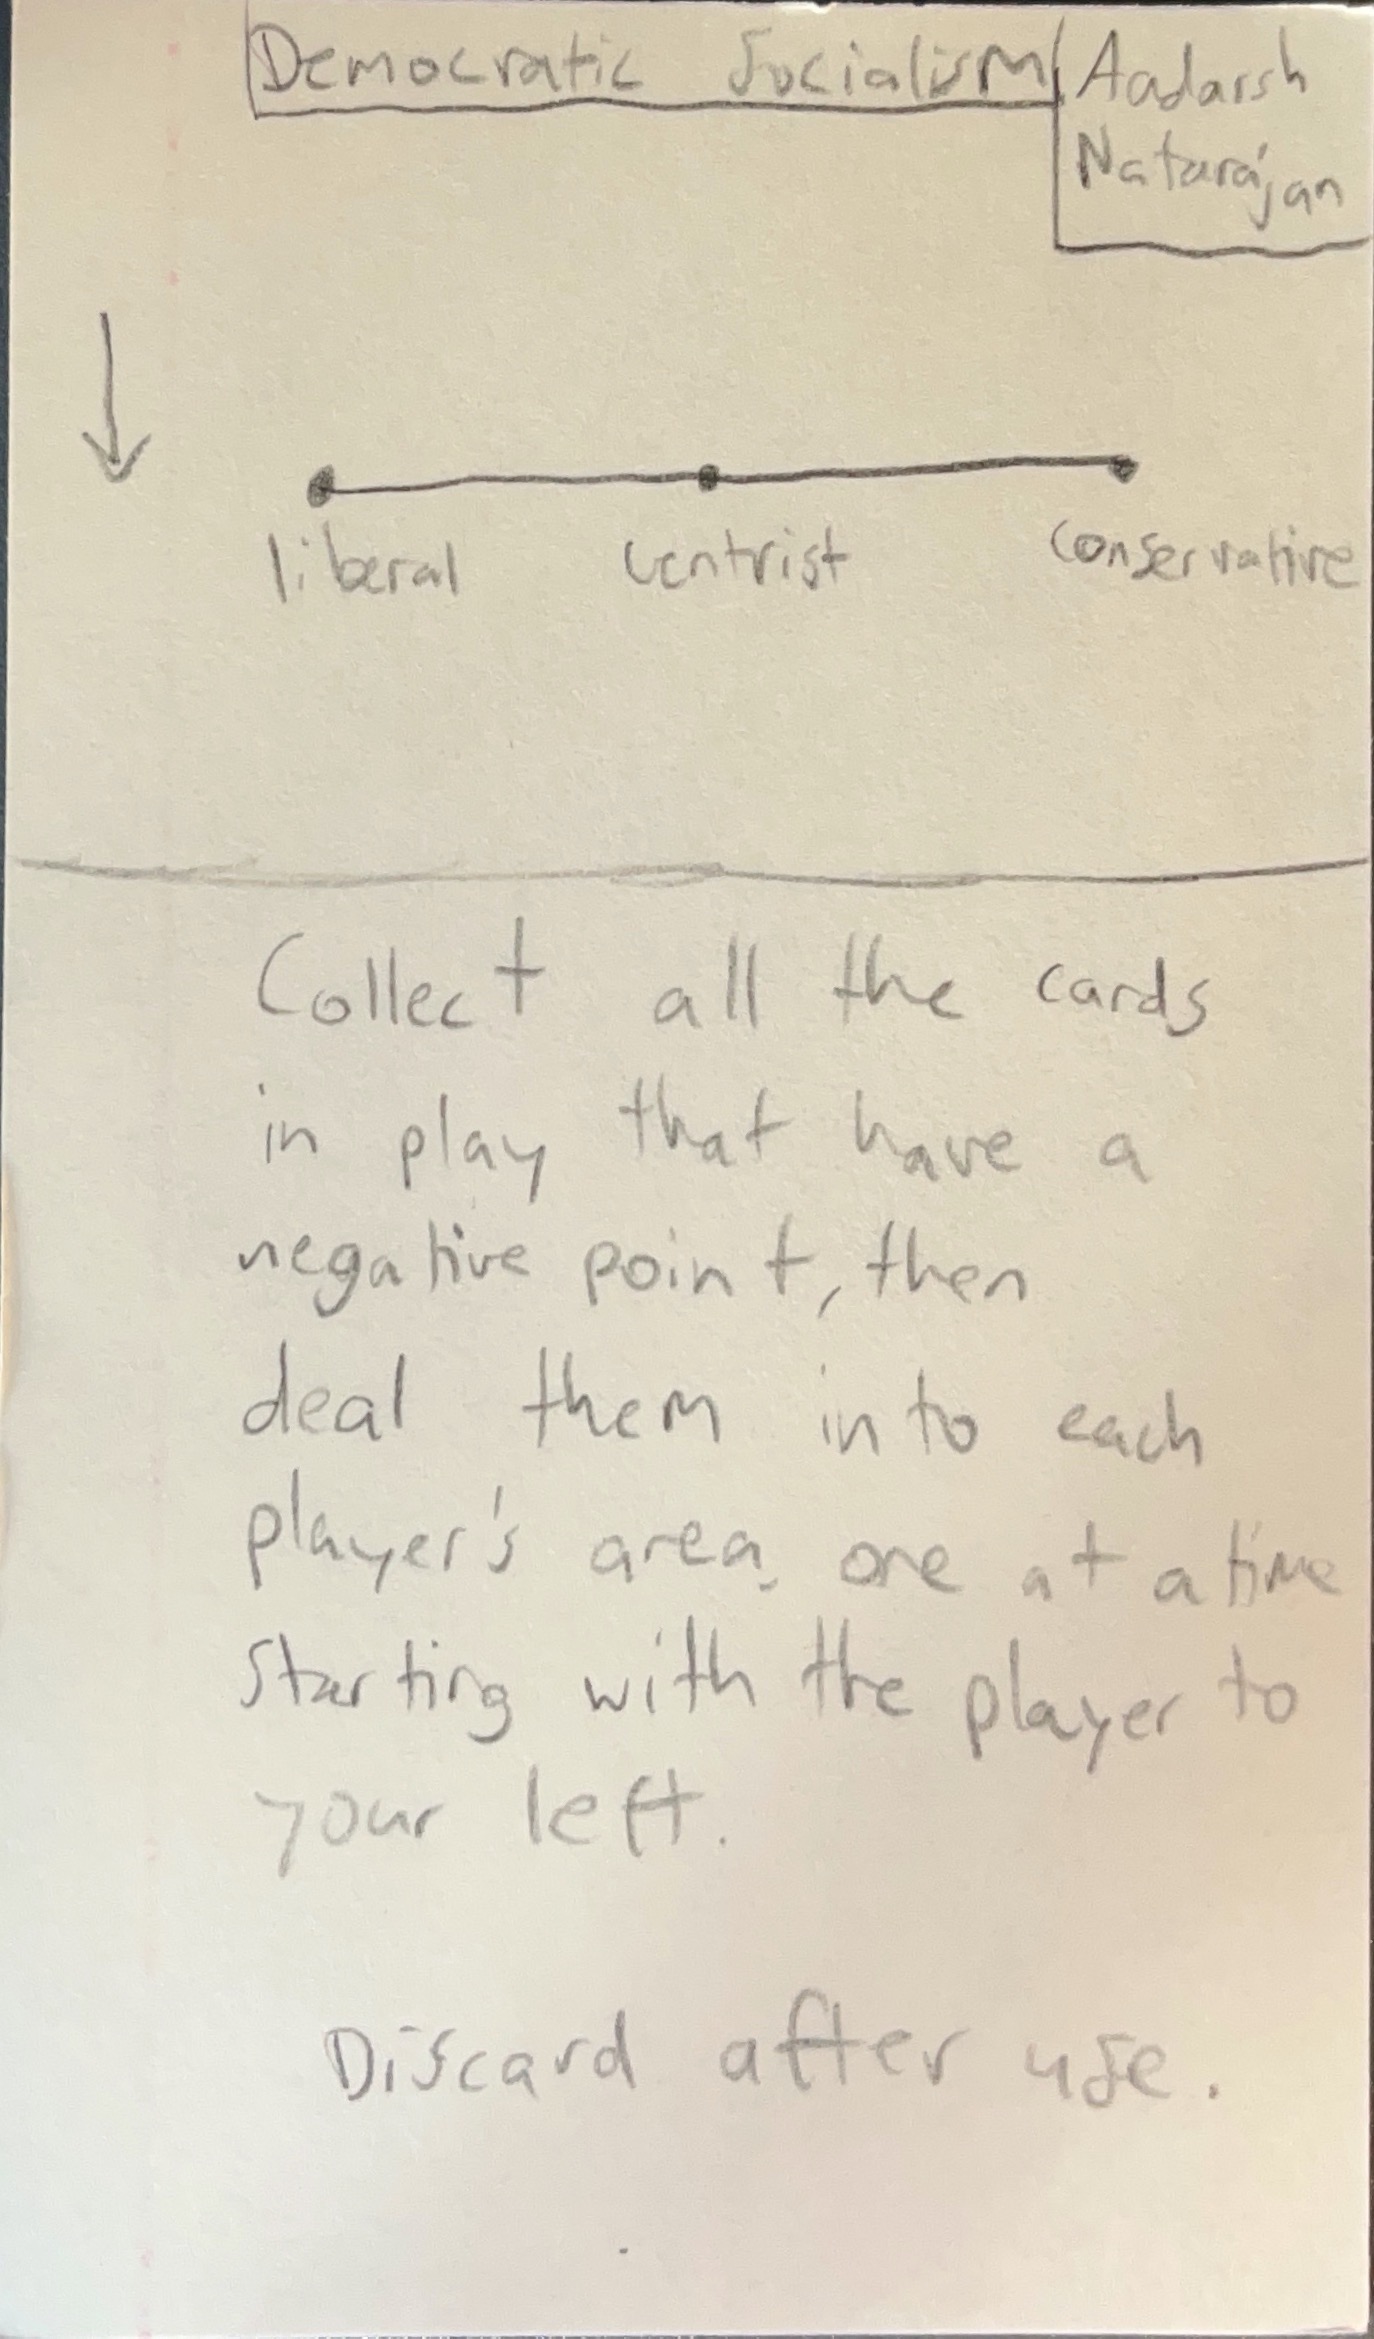 Democratic Socialism
Aadarsh
Natarajan
liberal centrist conservative
Collect all the cards
in play that have a
negative point, then
deal them into each
player's area, one at a time
starting with the player to
your left.
Discard after use.